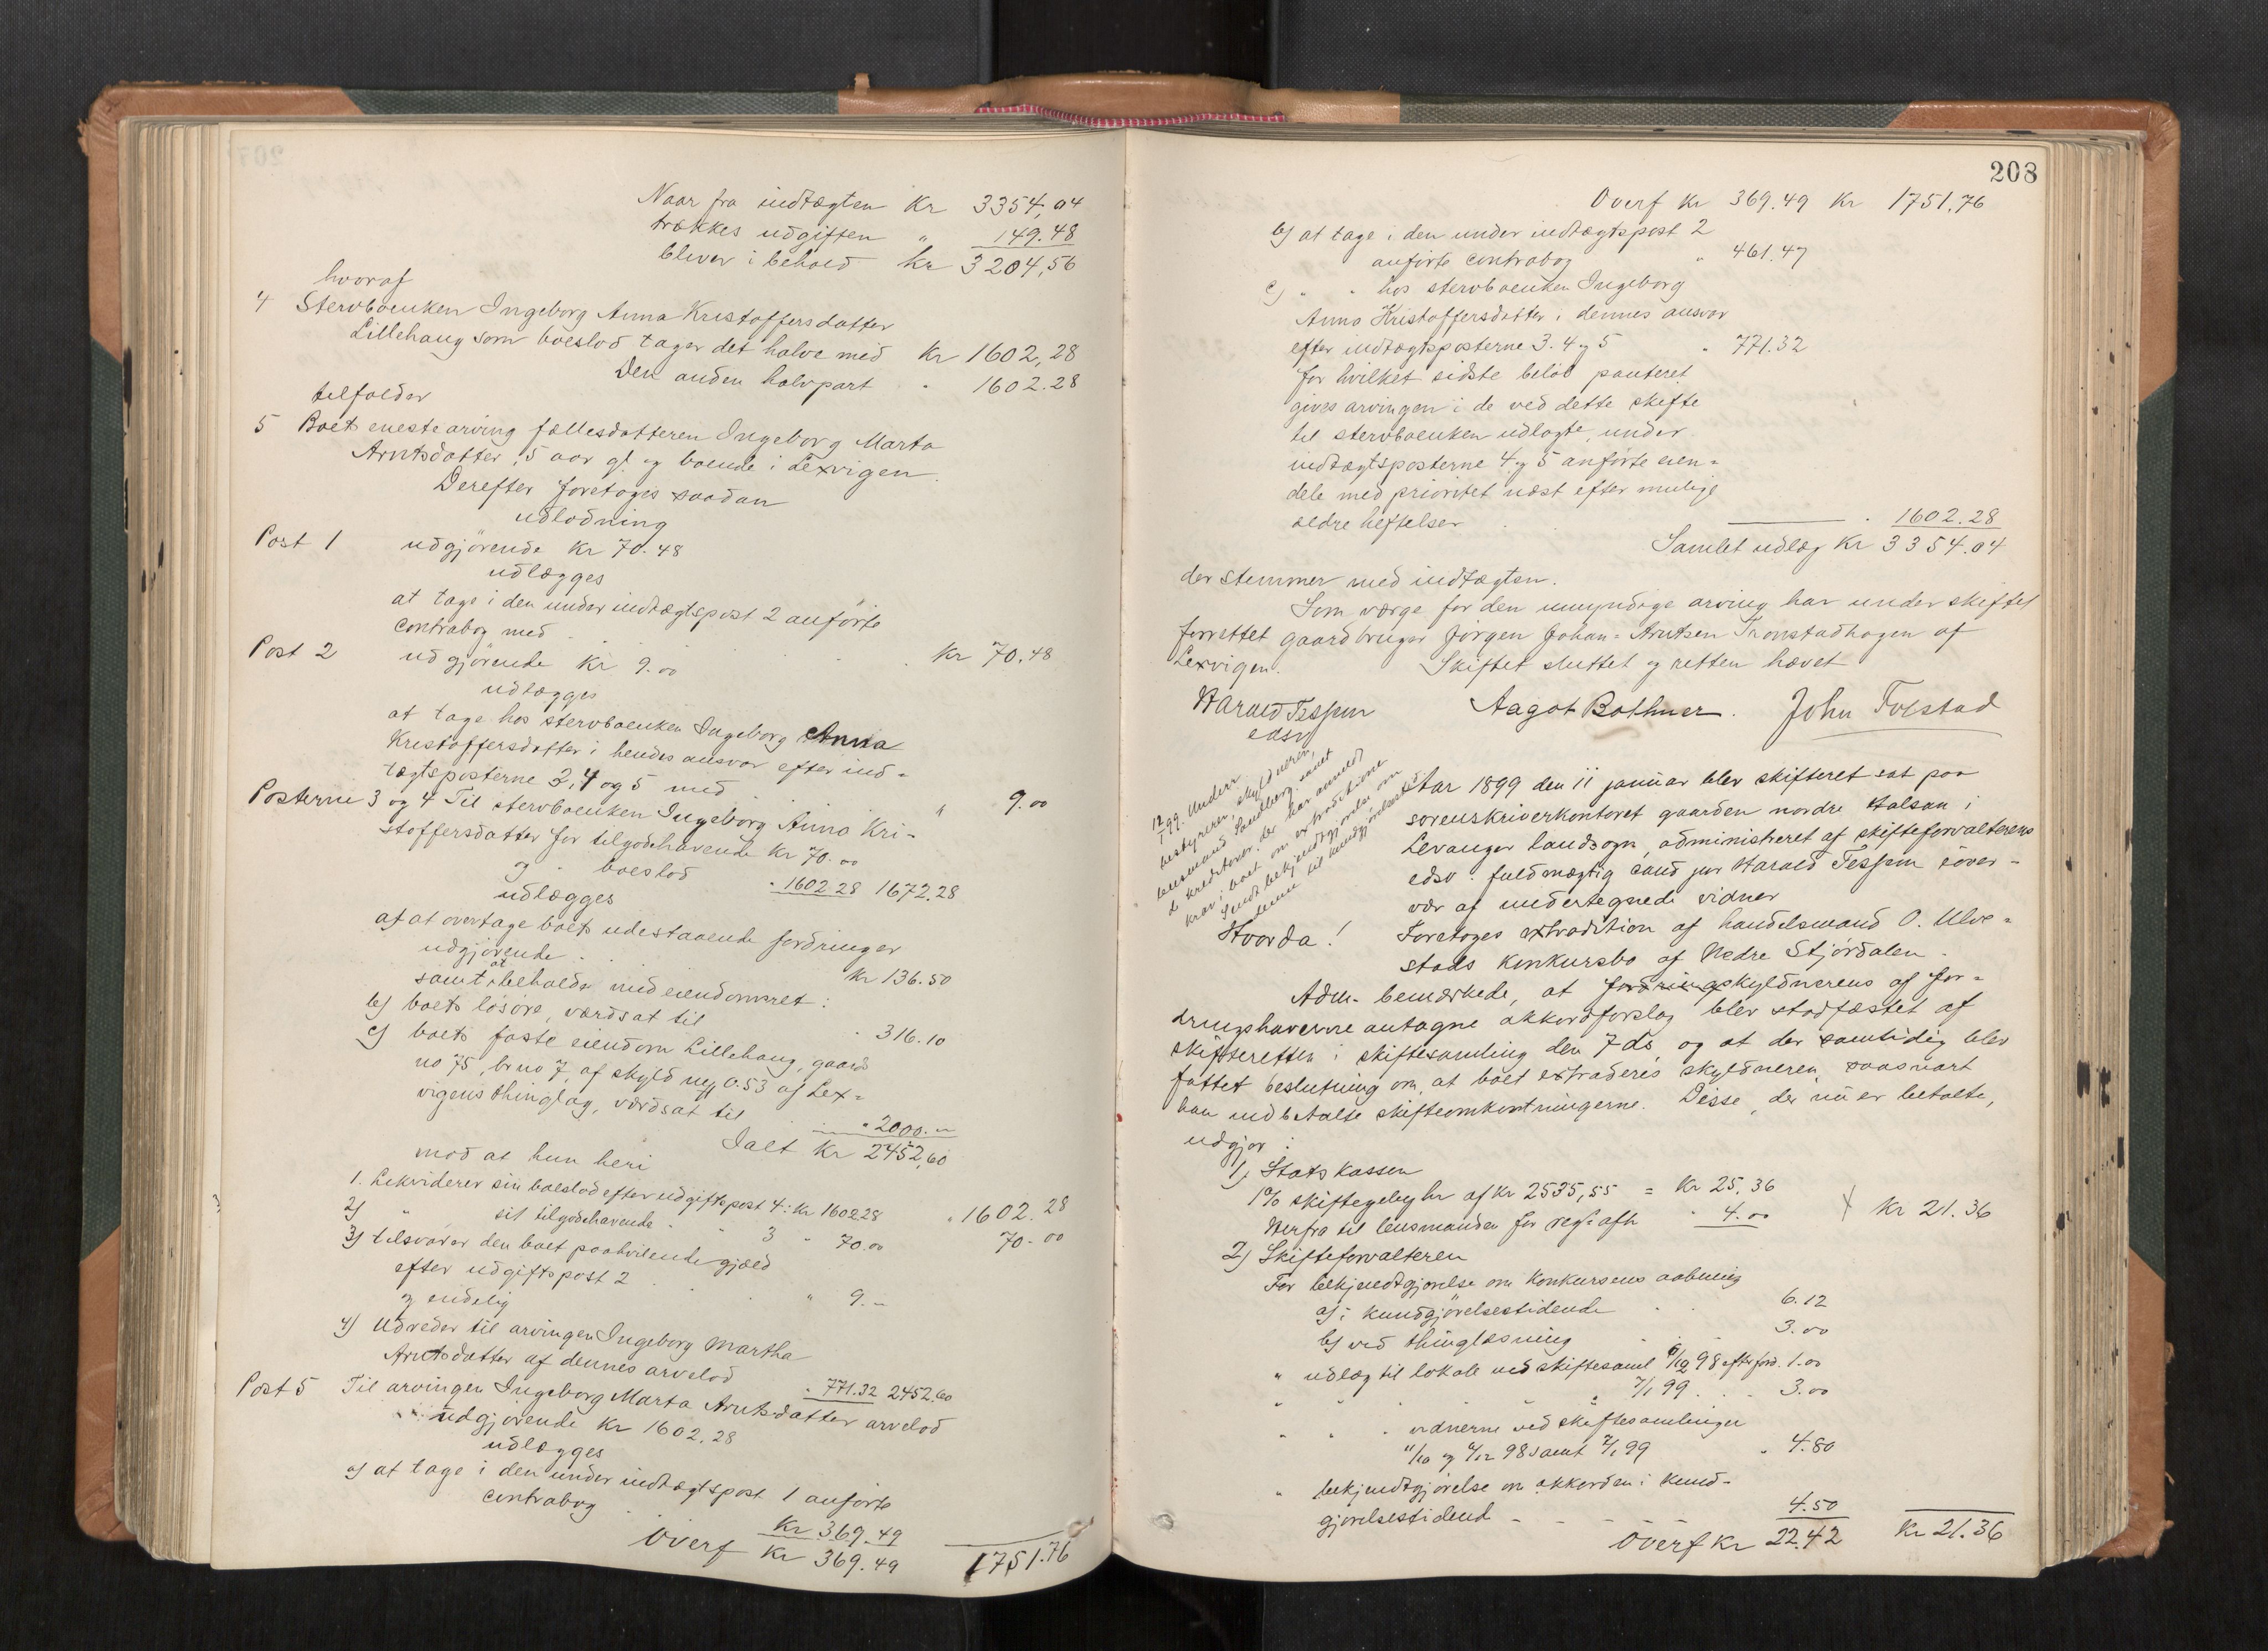 Naar fra indtægten Kr 3354,04
trækkes udgiften " 149.48
bliver i behold Kr 3204,56
hvoraf
4 Stervboenken Ingeborg Anna Kristoffersdatter
Lillehaug som boeslod tager det halve med Kr 1602,28
Den anden halvpart " 1602.28
tilfalder
5 Boets eneste arving fællesdatteren Ingeborg Marta
Arntsdatter, 5 aar gl. og boende i Lexvigen.
Derefter foretoges saadan
udlodning
Post 1 udgjørende Kr 70.48
udlægges
at tage i den under indtægtspost 2 anførte
contrabog med . . . . Kr 70.48
Post 2 udgjørende Kr 9.00
udlægges
at tage hos stervboenken Ingeborg Anna
Kristoffersdatter i hendes ansvar efter ind-
tægtsposterne 3, 4 og 5 med . . " 9.00
Posterne 3 og 4 Til stervboenken Ingeborg Anna Kri-
stoffersdatter for tilgodehavende Kr 70.00
og " boeslod " 1602.28 1672.28
udlægges
a) at overtage boets udestaaende fordringer
udgjørende . . . Kr 136.50
samt at beholde med eiendomsret:
b) boets løsøre, værdsat til " 316.10
c) boets faste eiendom Lillehaug, gaards
no 75, br no 7, af skyld mk 0.53 af Lex-
vigens thinglag, værdsat til " 2000.–
Ialt Kr 2452,60
mod at hun heri
1. Likviderer sin boeslod efter udgiftspost 4: Kr 1602.28 " 1602.28
2) " sit tilgodehavende " " 3 " 70.00 70.00
3) tilsvarer den boet paahvilende gjæld
efter udgiftspost 2 . . " 9.–
og endelig
4) Udreder til arvingen Ingeborg Martha
Arntsdatter af dennes arvelod " 771.32 2452.60
Post 5 Til arvingen Ingeborg Marta Arntsdatter arvelod
udgjørende Kr 1602.28
udlægges
a) at tage i den under indtægtspost 1 anførte
contrabog . . Kr 369.49
Overf Kr 369.49 1751.76
208
Overf Kr 369.49 Kr 1751.76
b) at tage i den under indtægtspost 2
anførte contrabog " 461.47
c) " " hos stervboenken Ingeborg
Anna Kristoffersdatter i dennes ansvar
efter indtægtsposterne 3. 4 og 5 " 771.32
for hvilket sidste beløb panteret
gives arvingen i de ved dette skifte
til stervboenken udlagte, under
indtægtsposterne 4 og 5 anførte eien-
dele med prioritet næst efter mulige
ældre heftelser . . " 1602.28
Samlet udlæg Kr 3354.04
der stemmer med indtægten.
Som værge for den umyndige arving har under skiftet
forrettet gaardbruger Jørgen Johan Arntsen Tronstadhagen af
Lexvigen. Skiftet sluttet og retten hævet
Harald Tessem Aagot Bothner. John Folstad
edsv
12/1 99. Underr
bestyreren, skyldneren,
lensmand Sandberg samt
de kreditorer, der har anmeldt
krav i boet om extraditione
Sendt bekjendtgjørelse om
denne til kundgjørelsestid
Aar 1899 den 11 januar blev skifteret sat paa
sorenskriverkontoret gaarden nordre Halsan i
Levanger landsogn, administreret af skifteforvalterens
edsv. fuldmægtig cand jur Harald Tessem i over-
vær af undertegnede vidner
Hvorda! Foretoges extradition af handelsmand O. Ulve-
stads konkursbo af Nedre Stjørdalen.
Adm. bemærkede, at fordringskyldnerens af for-
dringshaverne antagne akkordforslag blev stadfæstet af
skifteretten i skiftesamling den 7 ds, og at der samtidig blev
fattet beslutning om, at boet extraderes skyldneren, saasnart
han indbetalte skifteomkostningerne. Disse, der nu er betalte,
udgjør:
1) Statskassen
1% skiftegebyhr af Kr 2535,55 = Kr 25.36
Herfra til lensmanden for regs. afh " 4.00 Kr 21.36
2) Skifteforvalteren
For bekjendtgjørelse om konkursens aabning
a) i kundgjørelsestidende . . 6.12
b) ved thinglæsning . . 3.00
" udlæg til lokale ved skiftesamd 6/12 98 efter ford. 1.00
" " " " 7/1 99 . . 3.00
" " " vidnerne ved skiftesamlinger
11/10 og 6/12 98 samt 7/1 99 " 4.80
" bekjendtgjørelse om akkorden i kund-
gjørelsestidend - - - 4.50
Overf Kr 22.42 Kr 21.36